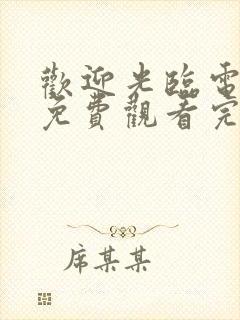 歡迎光臨電
免費觀看完
席某某